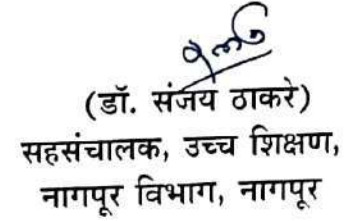 (डॉ. संजय ठाकरे)
सहसंचालक, उच्च शिक्षण,
नागपूर विभाग, नागपूर